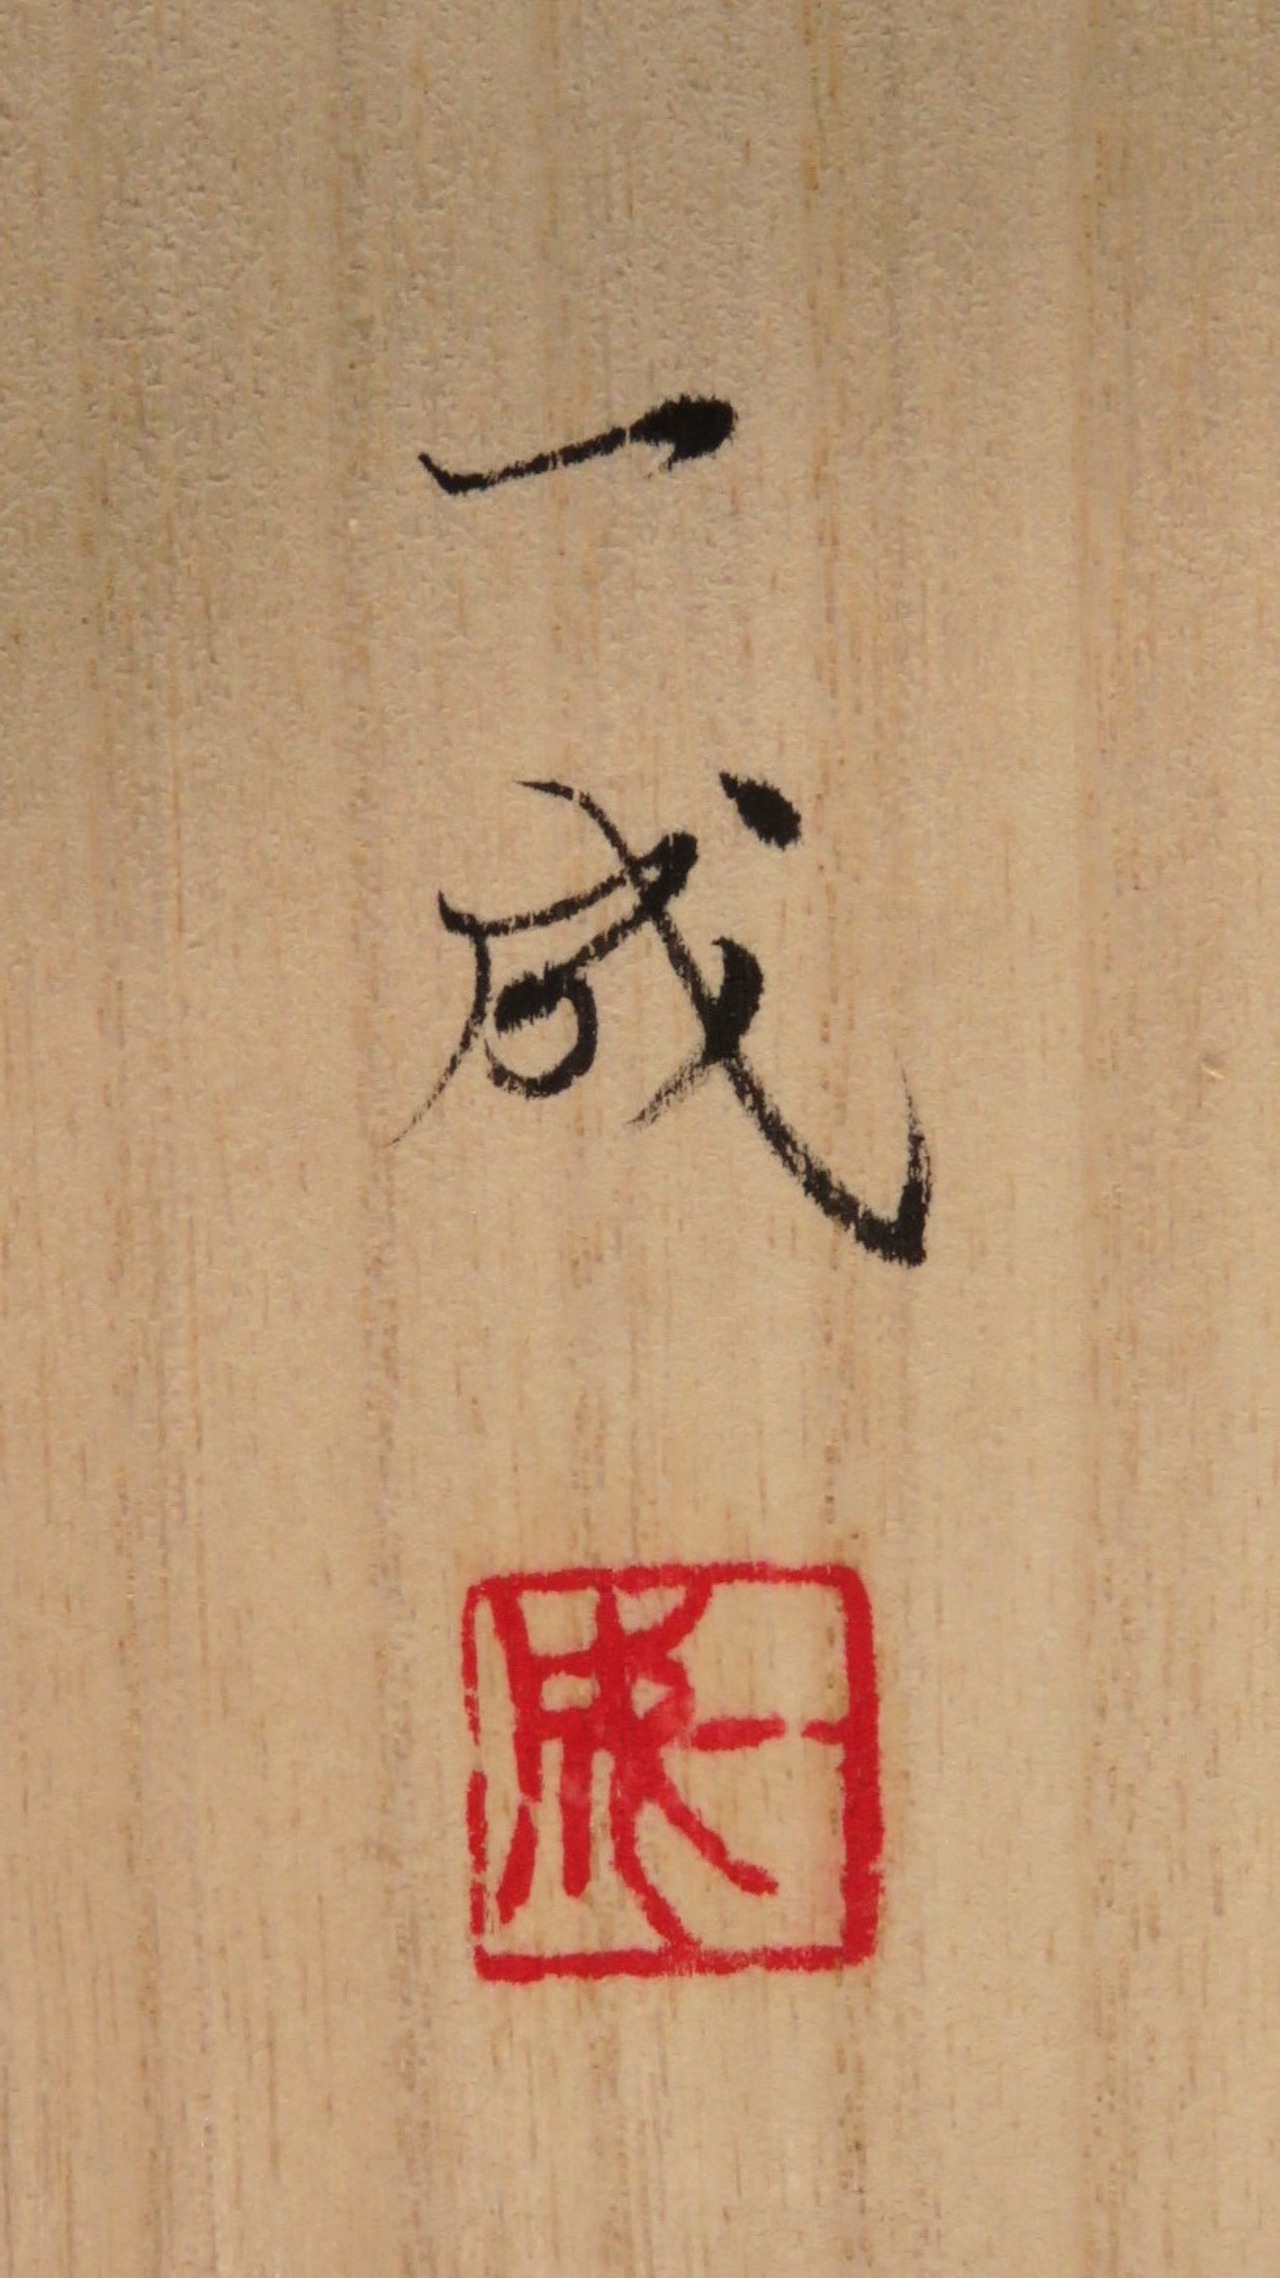 一成
一成